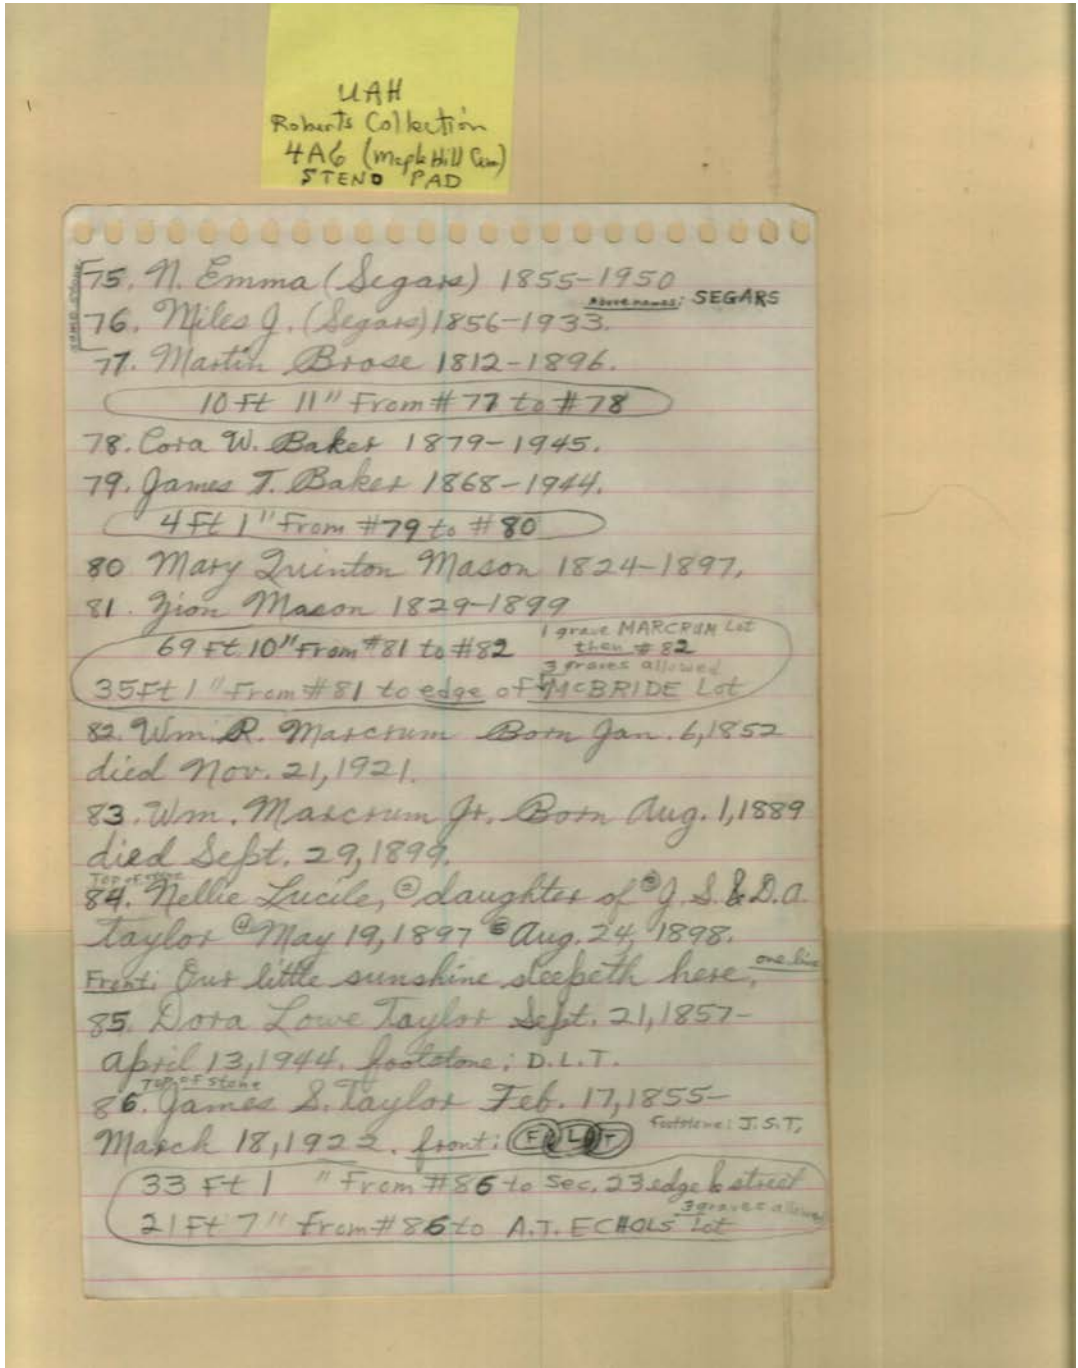 UAH
Roberts Collection
4A6 (Maple Hill Cem)
STENO PAD
same stone
75. N. Emma (Segars) 1855-1950
Above names: SEGARS
76. Miles J. (Segars) 1856-1933.
77. Martin Brose 1812-1896.
10 Ft 11" From #77 to #78
78. Cora W. Baker 1879-1945.
79. James T. Baker 1868-1944.
4 Ft 1" From #79 to #80
80 Mary Quinton Mason 1824-1897.
81. Zion Mason 1829-1899
1 grave MARCRUM Lot
69 Ft. 10" From #81 to #82 then #82
3 graves allowed
35 Ft 1" From #81 to edge of McBRIDE Lot
82. Wm. R. Marcrum Born Jan. 6, 1852
died Nov. 21, 1921.
83. Wm. Marcrum Jr. Born Aug. 1, 1889
died Sept. 29, 1899.
Top of stone
84. Nellie Lucile, ② daughter of ③ J. S. & D. A.
Taylor ④ May 19, 1897 ⑤ Aug. 24, 1898.
Front: Our little sunshine sleepeth here, one line
85. Dora Lowe Taylor Sept. 21, 1857-
April 13, 1944. footstone: D.L.T.
Top of stone
86. James S. Taylor Feb. 17, 1855-
March 18, 1922. front: F L T Footstone: J.S.T.
33 Ft 1 " From #86 to Sec. 23 edge & street
3 graves allowed
21 Ft 7" From #86 to A.T. ECHOLS Lot